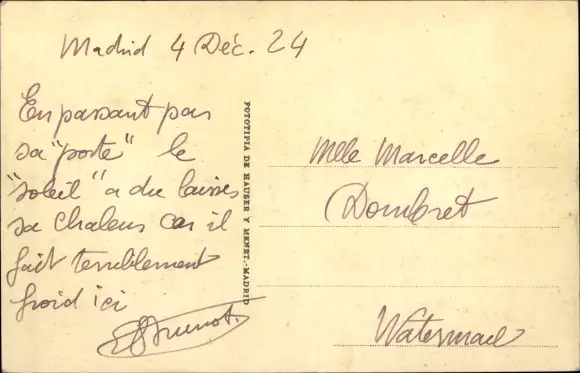 Madrid 4 Déc. 24
En passant par
sa "porte" le
"soleil" a du laisser
sa chaleur car il
fait terriblement
froid ici
FOTOTIPIA DE HAUSER Y MENET.-MADRID
Mlle Marcelle
Dombret
Watermael